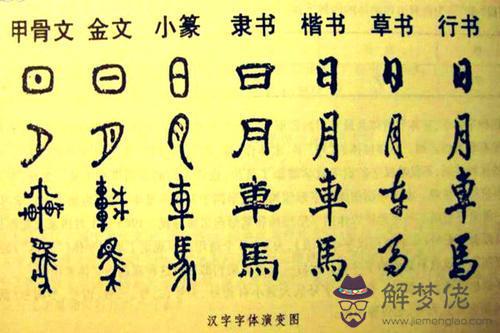 甲骨文 金文 小篆 隶书 楷书 草书 行书
日 日 日 日 日 日 日
月 月 月 月 月 月 月
車 車 車 車 車 车 車
馬 馬 馬 馬 馬 马 馬
汉字字体演变图
解梦佬
www.jiemenglao.com